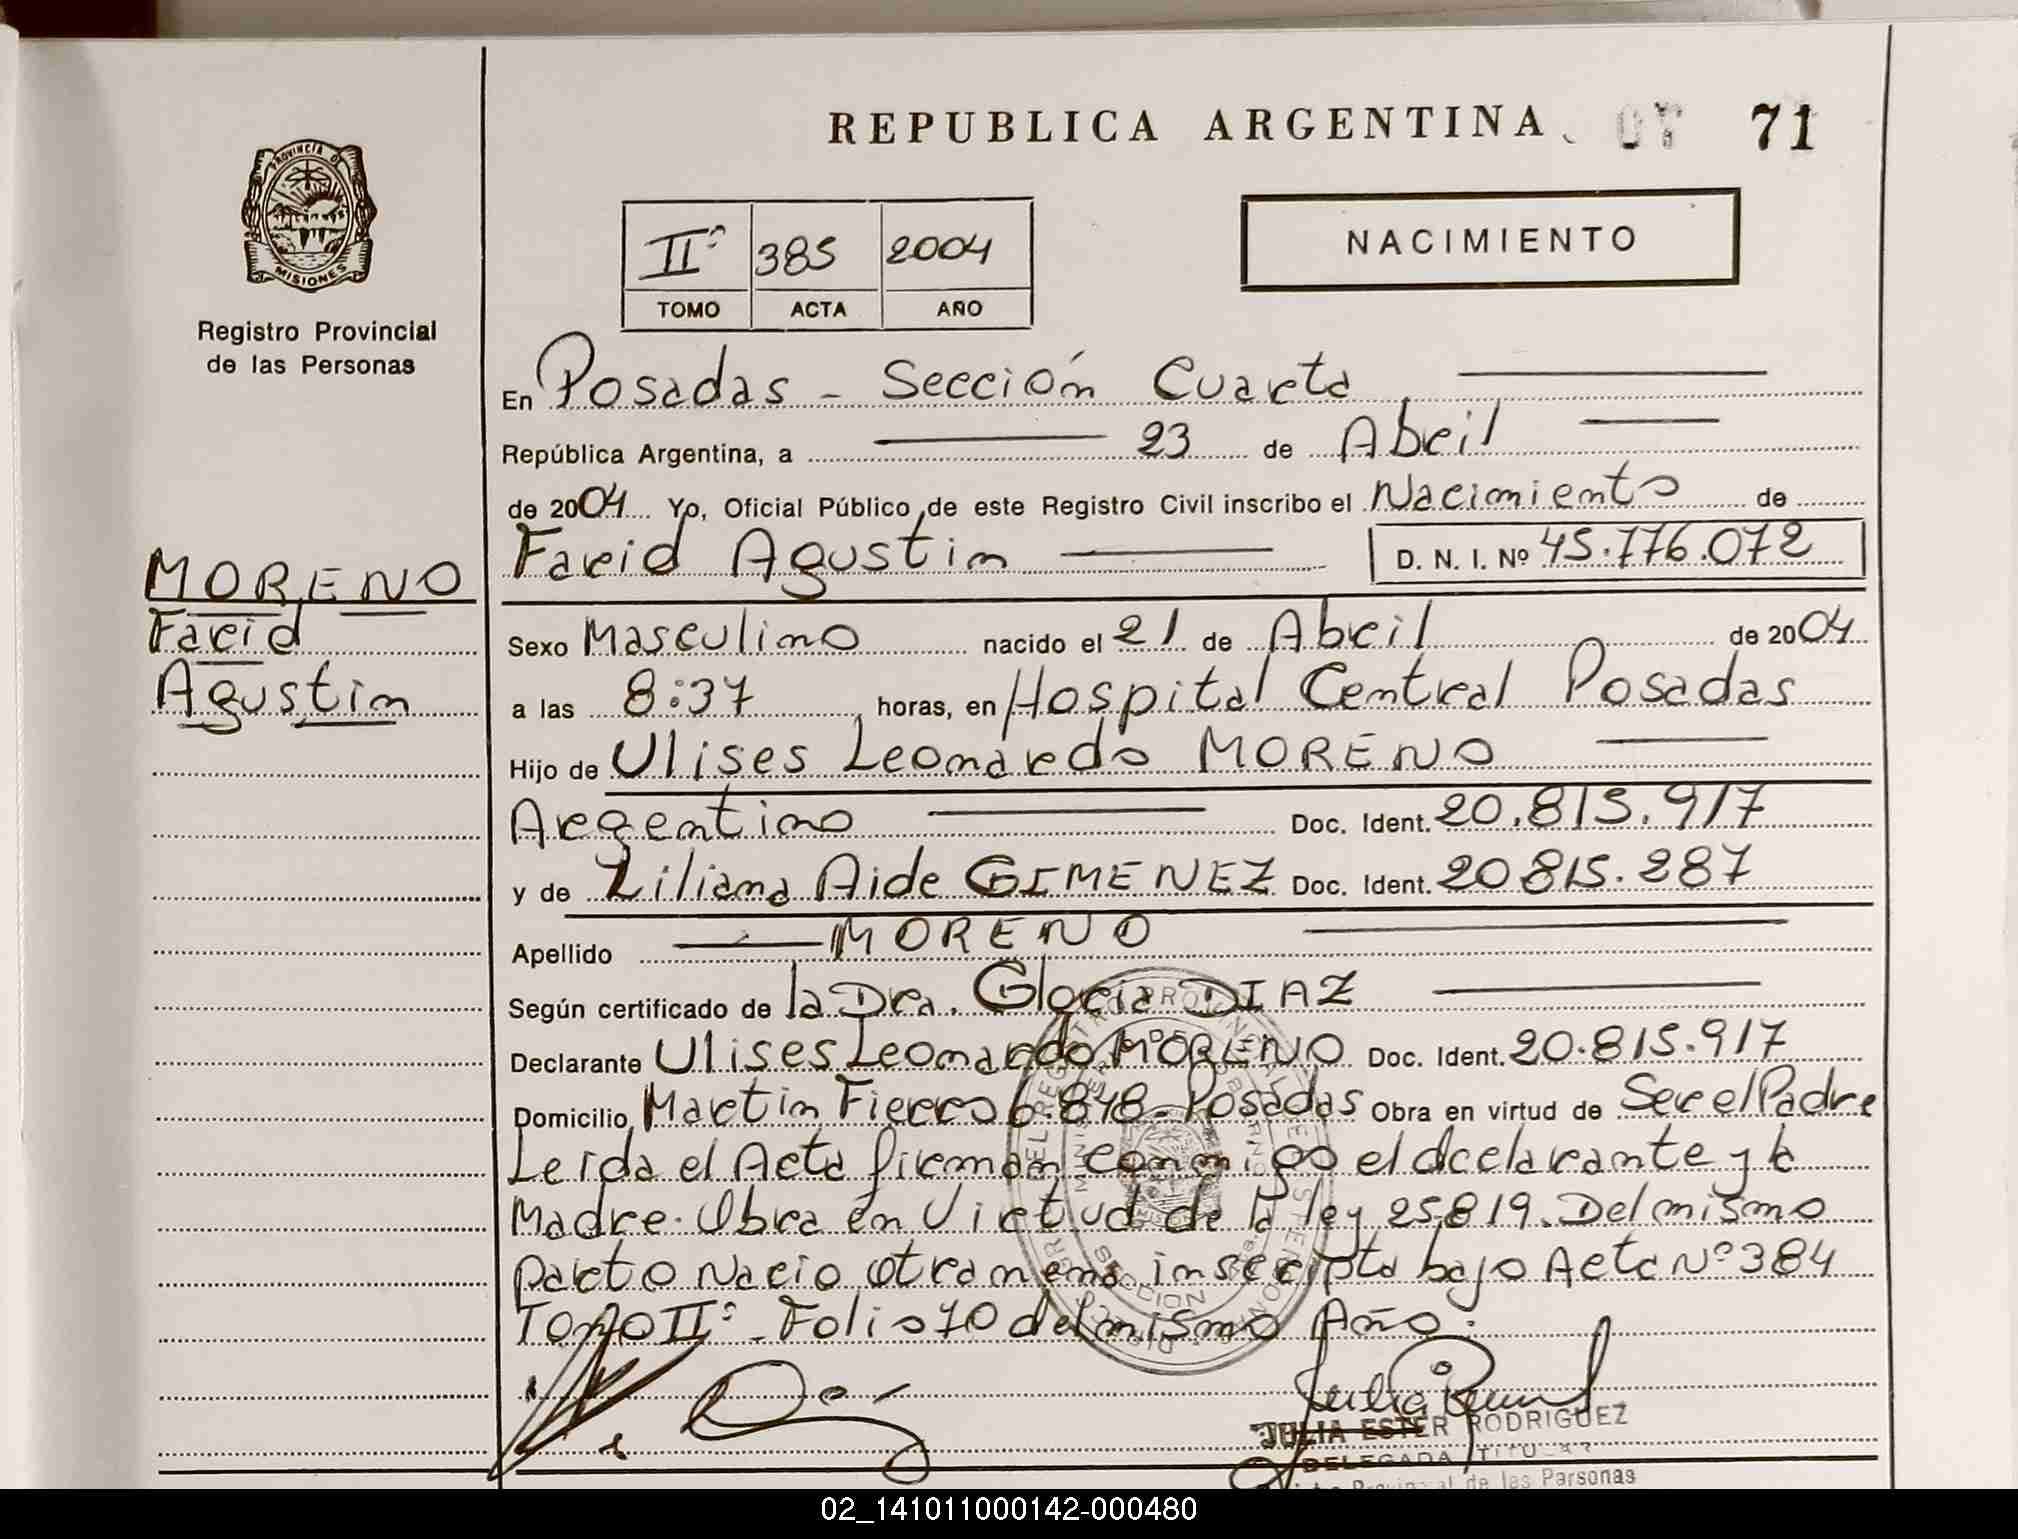 REPUBLICA ARGENTINA 71
PROVINCIA DE
MISIONES
Registro Provincial
de las Personas
IIº 385 2004
TOMO ACTA AÑO
NACIMIENTO
En Posadas - Sección Cuarta
República Argentina, a 23 de Abril
de 2004 Yo, Oficial Público de este Registro Civil inscribo el Nacimiento de
Farid Agustin D. N. I. Nº 45.776.072
MORENO
Farid
Agustin
Sexo Masculino nacido el 21 de Abril de 2004
a las 8:37 horas, en Hospital Central Posadas
Hijo de Ulises Leonardo MORENO
Argentino Doc. Ident. 20.815.917
y de Liliana Aide GIMENEZ Doc. Ident. 20815.287
Apellido MORENO
Según certificado de la Dra. Gloria DIAZ
Declarante Ulises Leonardo MORENO Doc. Ident. 20.815.917
Domicilio Martin Fierro 6848 - Posadas Obra en virtud de Ser el Padre
Leida el Acta firman conmigo el declarante y la
Madre. Obra en Virtud de la ley 25819. Del mismo
parto Nacio otra nena inscripta bajo Acta Nº 384
Tomo IIº - Folio 70 del mismo Año.
JULIA ESTER RODRIGUEZ
DELEGADA TITULAR
Provincial de las Personas
02_141011000142-000480